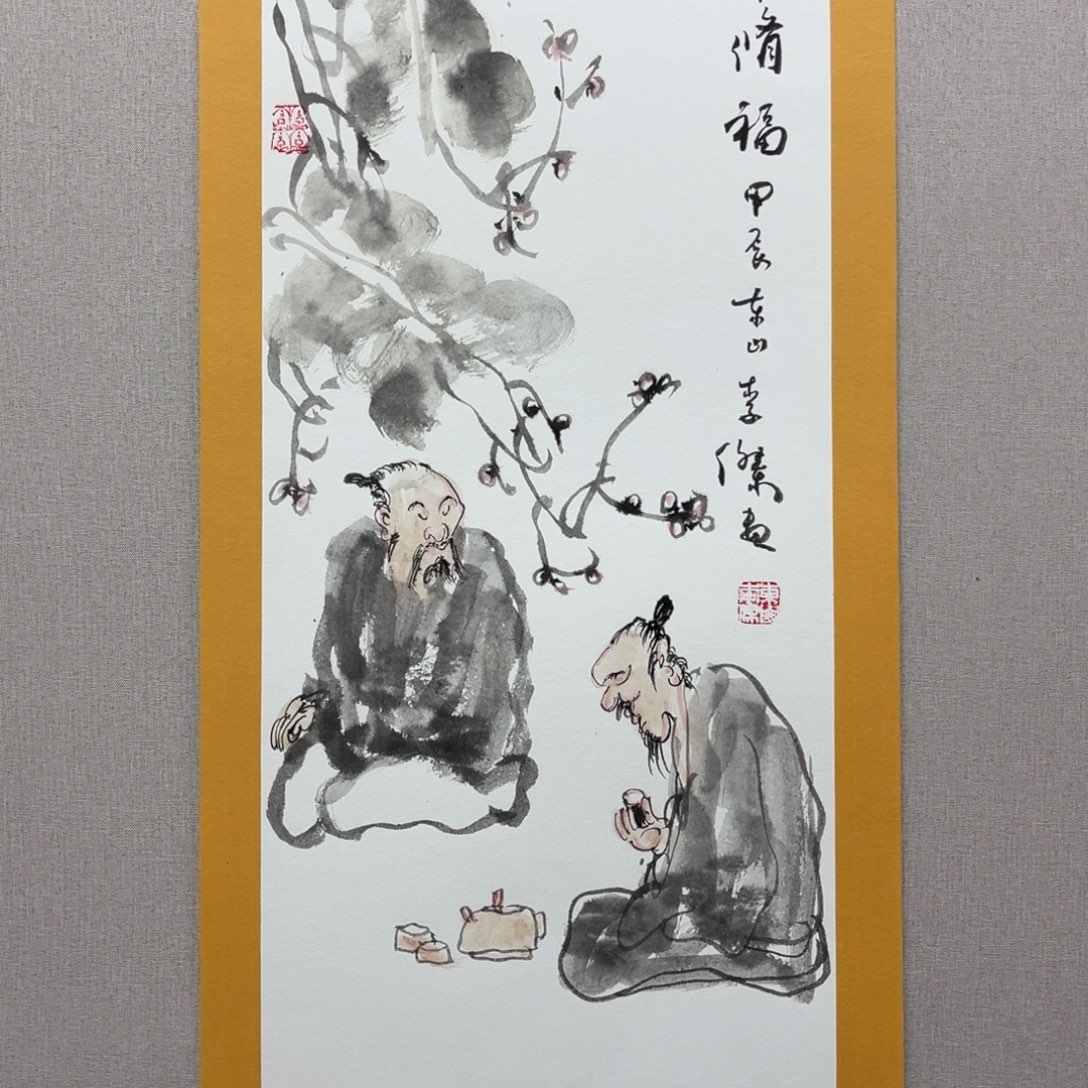 脩福甲辰东山李傑画